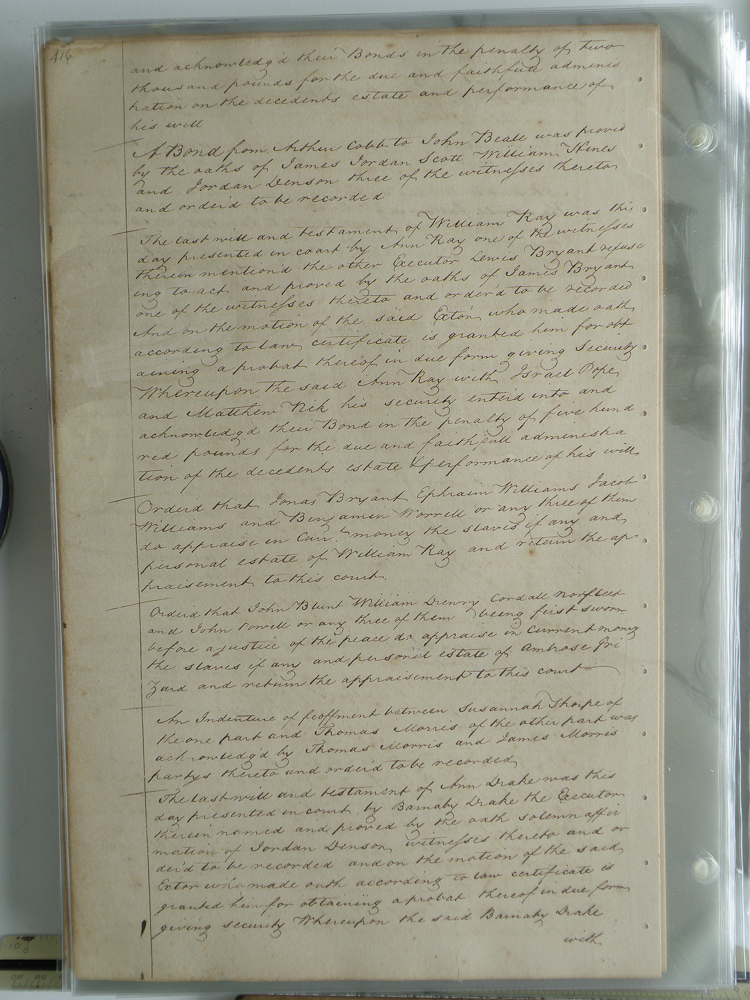 416
and acknowledg'd their Bonds in the penalty of two
thousand pounds for the due and faithfull adminis
tration on the decedents estate and performance of
his will
A Bond from Arthur Cobb to John Beale was proved
by the oaths of James Jordan Scott William Hines
and Jordan Denson three of the witnesses thereto
and order'd to be recorded
The last will and testament of William Kay was this
day presented in court by Ann Kay one of the witnesses
therein mention'd the other Executor Lewis Bryant refuse
ing to act and proved by the oaths of James Bryant
one of the witnesses thereto and order'd to be recorded
And on the motion of the said Extor who made oath
according to law certificate is granted him for obt
aining a probat thereof in due form giving Security
Whereupon the said Ann Kay with Israel Pope
and Matthew his security enterd into and
acknowledgd their Bond in the penalty of five hund
red pounds for the due and faithfull administra
tion of the decedents estate & performance of his will
Orderd that Jonas Bryant Ephraim Williams Jacob
Williams and Benjamin Worrell or any three of them
do appraise in Curr.t money the slaves if any and
personal estate of William Kay and return the ap
praisement to this court
Orderd that John Blunt William Drewry Cordall Norfleet
and John Powell or any three of them being first sworn
before a justice of the peace do appraise in Current money
the slaves if any and personal estate of Ambrose Gri
zard and return the appraisement to this court
An Indenture of feoffment between Susannah Thorpe of
the one part and Thomas Morris of the other part was
acknowledg'd by Thomas Morris and James Morris
partys thereto and order'd to be recorded
The last will and testament of Ann Drake was this
day presented in court by Barnaby Drake the Executor
therein named and proved by the oath solemn affir
mation of Jordan Denson witnesses thereto and or
der'd to be recorded and on the motion of the said
Extor who made oath according to law certificate is
granted him for obtaining a probat thereof in due form
giving security Whereupon the said Barnaby Drake
with